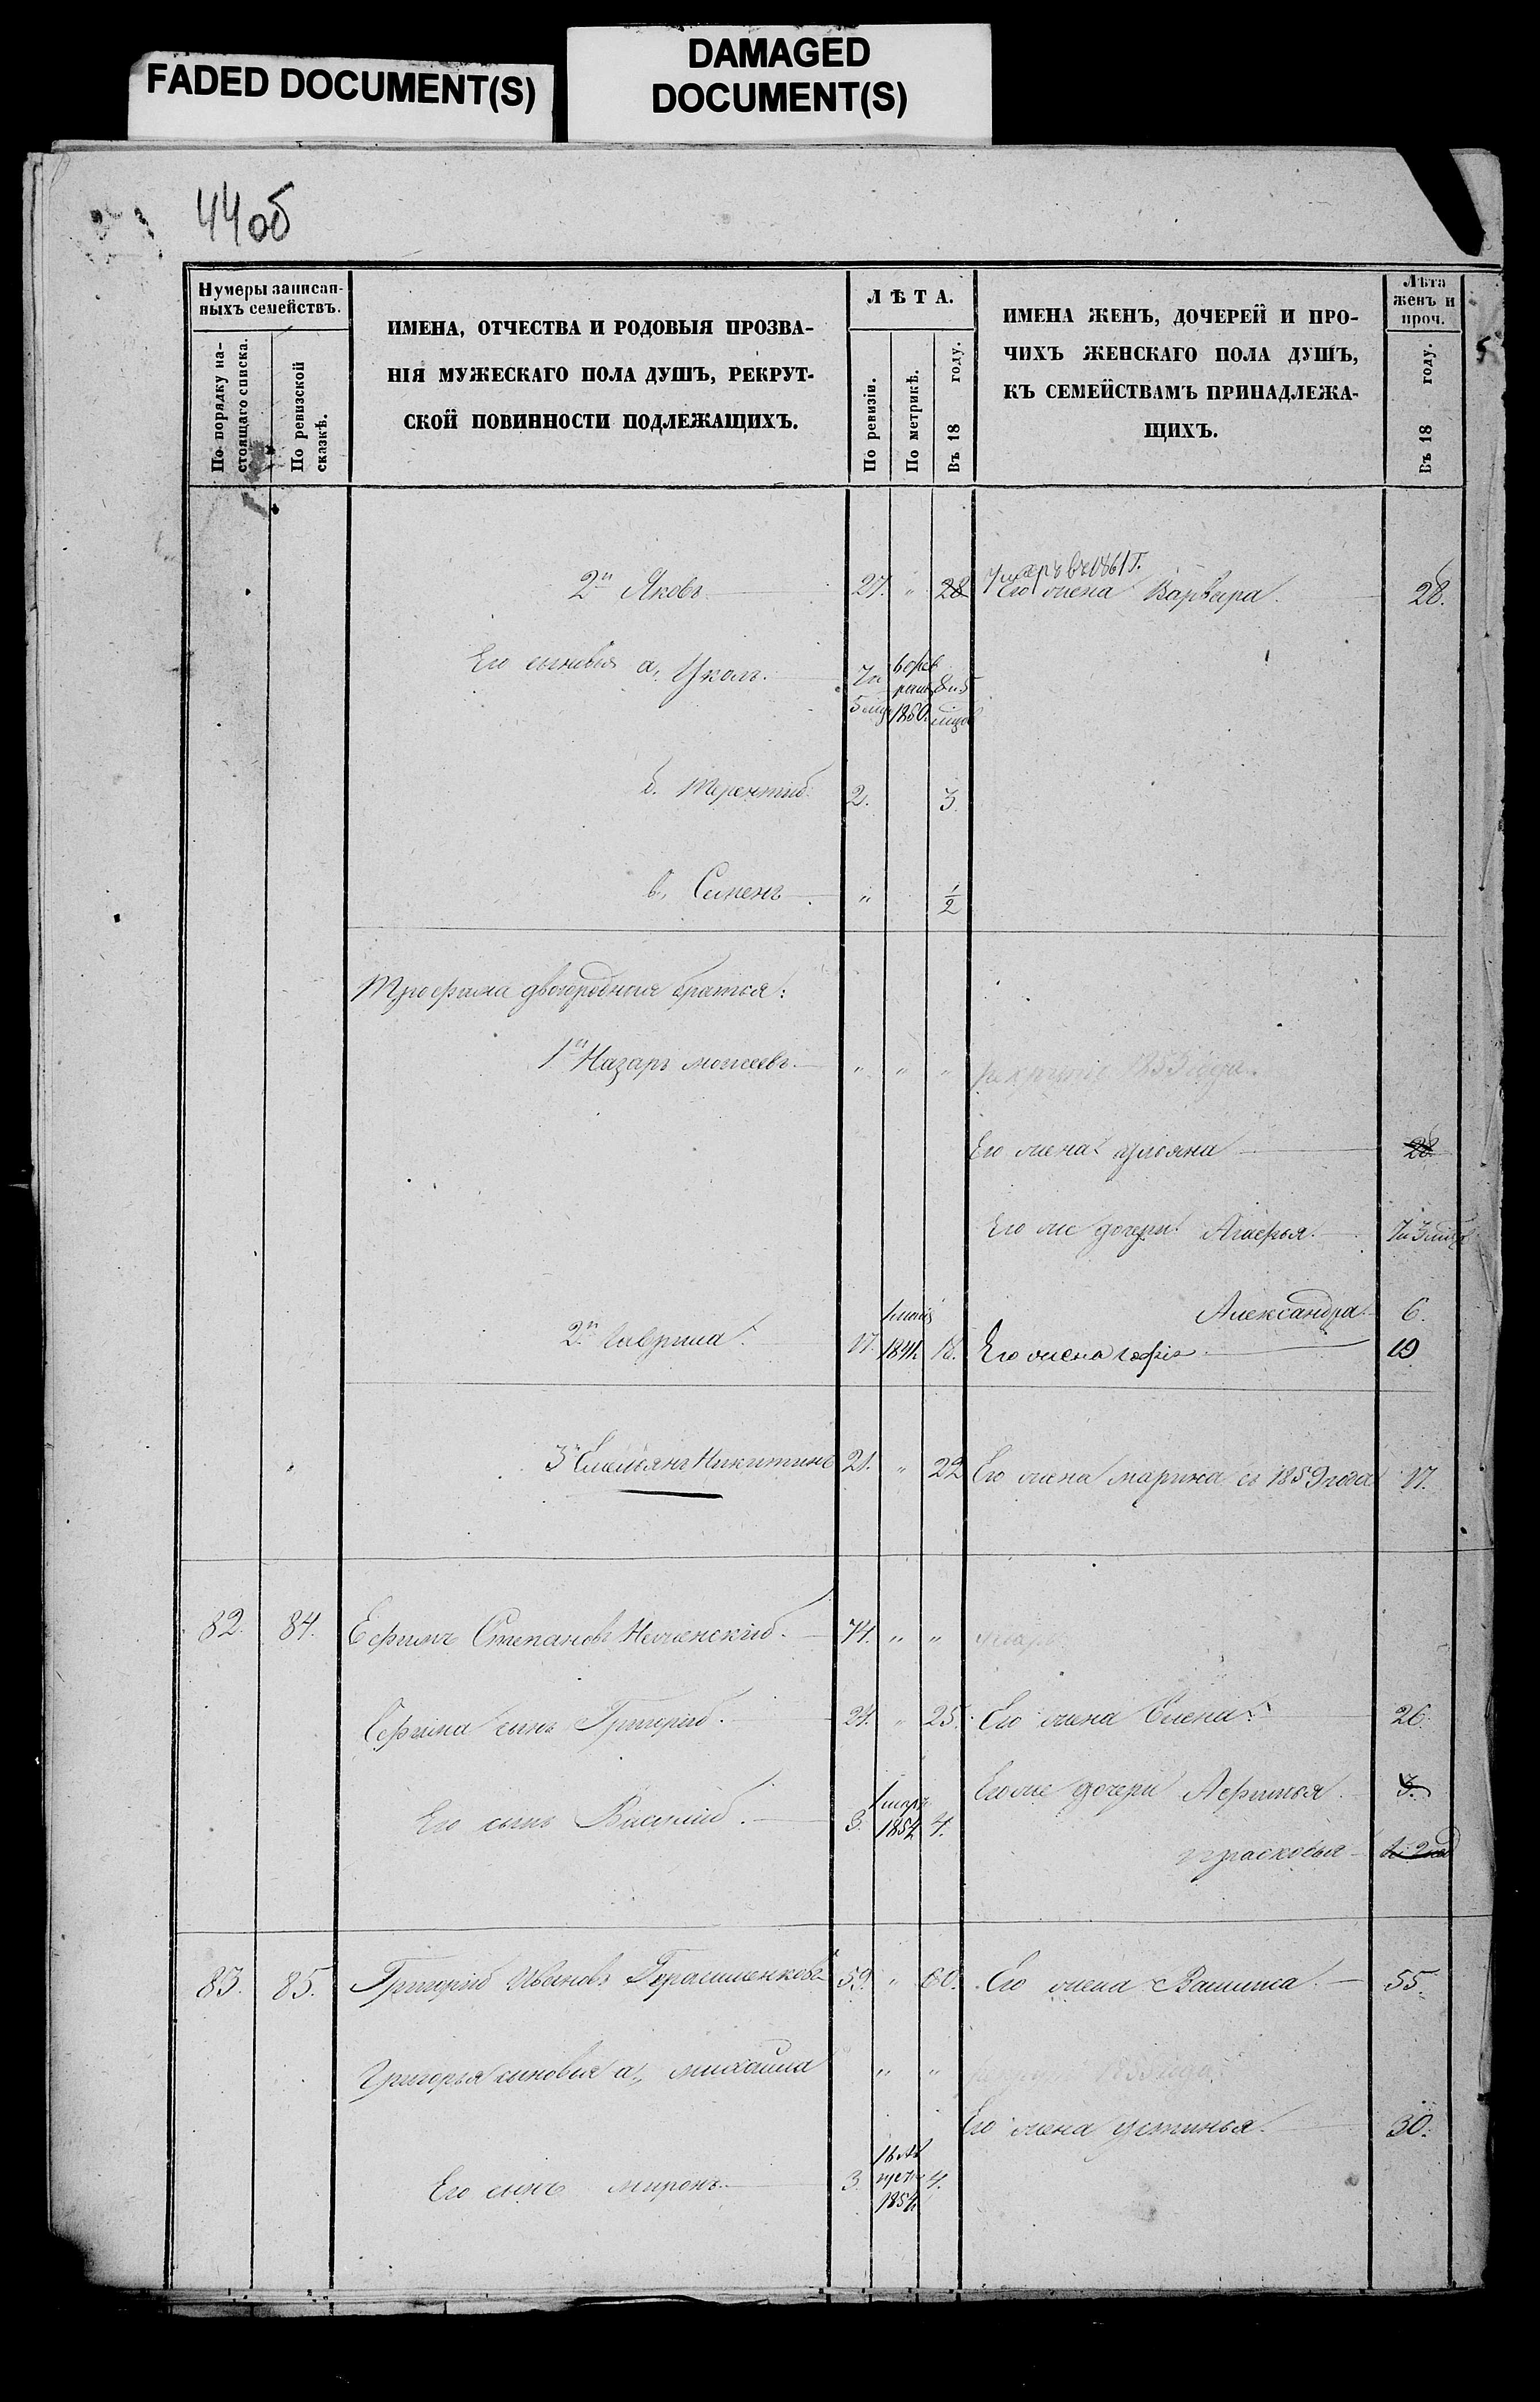 FADED DOCUMENT(S)
DAMAGED
DOCUMENT(S)
44об
Нумеры записан-
ныхъ семействъ.
По порядку на-
стоящаго списка.
По ревизской
сказкѣ.
ИМЕНА, ОТЧЕСТВА И РОДОВЫЯ ПРОЗВА-
НІЯ МУЖЕСКАГО ПОЛА ДУШЪ, РЕКРУТ-
СКОЙ ПОВИННОСТИ ПОДЛЕЖАЩИХЪ.
ЛѢТА.
По ревизіи.
По метрикѣ.
Въ 18 году.
ИМЕНА ЖЕНЪ, ДОЧЕРЕЙ И ПРО-
ЧИХЪ ЖЕНСКАГО ПОЛА ДУШЪ,
КЪ СЕМЕЙСТВАМЪ ПРИНАДЛЕЖА-
ЩИХЪ.
Лѣта
женъ и
проч.
Въ 18 году.
умеръ въ 1861 г.
2й Яковъ 27. " 28 Его жена Варвара. 28.
Его сыновья а,
7 и 5 1850.
б. Терентій 2. 3.
в, Семенъ " 1/2
Трофима двоюродныя братья:
1й Назаръ " " " 1853 года.
Его жена Ульяна 28
Его же дочери Агафья 7 и 3
Александра 6.
2й Гаврила 17. 1841. 18. Его жена Софія 19
3й Емельянъ Никитинъ 21. " 22 Его жена Марина съ 1859 года 17.
82. 84. Ефимъ Степановъ 74. " " умеръ
Ефима сынъ Григорій. 24. " 25. Его жена Елена 26.
Его же дочери Афимья 3.
Его сынъ Василій. 3. 1 мар. 1854 4.
Прасковья
83. 85. Григорій Ивановъ Герасименковъ 59. " 60. Его жена 55.
Григорья сыновья а, Михайла " " 1855 года
Его жена Устинья. 30.
Его сынъ Миронъ 3. 1854 4.